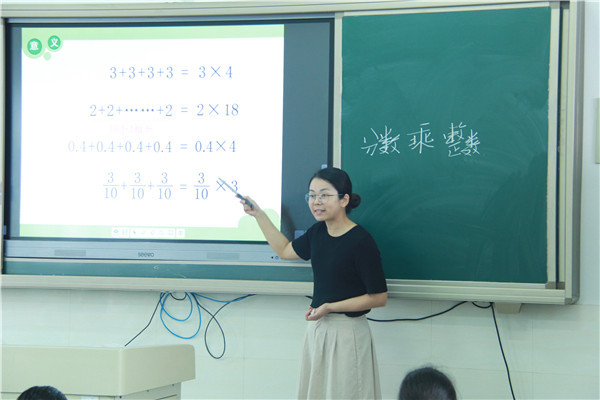 意义
3+3+3+3 = 3×4
2+2+……+2 = 2×18
0.4+0.4+0.4+0.4 = 0.4×4
3/10+3/10+3/10 = 3/10×3
分数乘整数